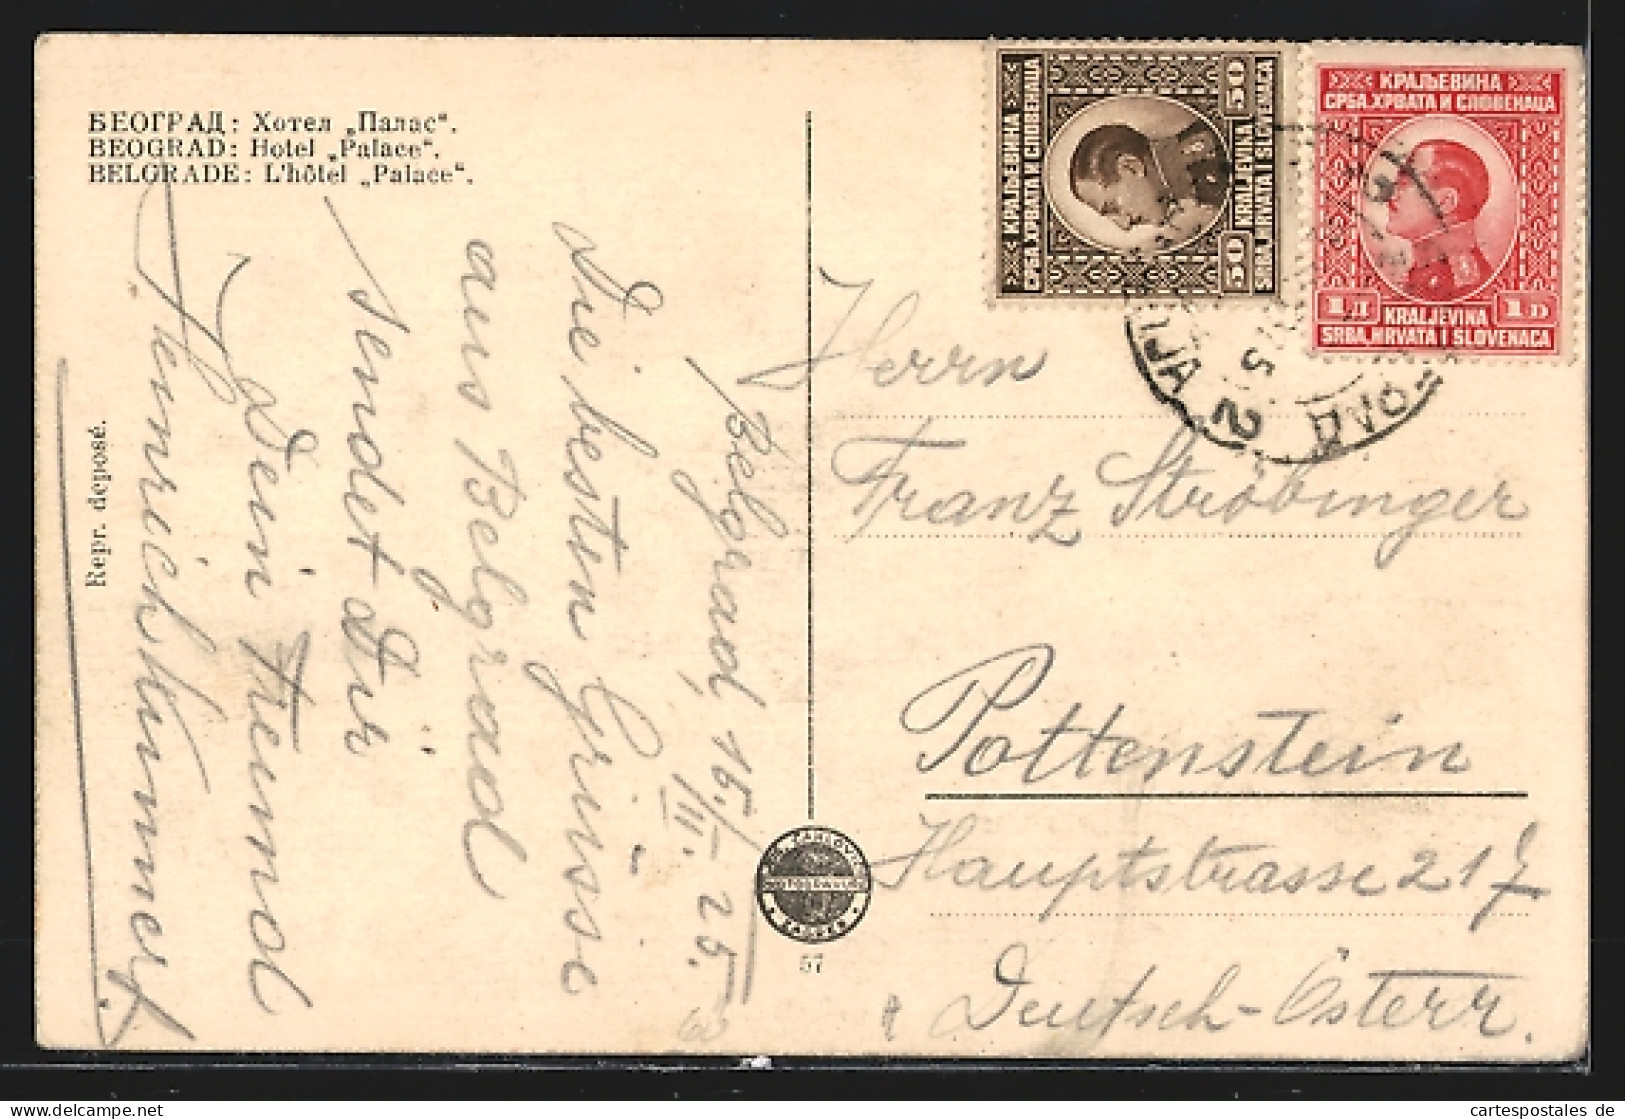 БЕОГРАД: Хотел „Палас“.
BEOGRAD: Hotel „Palace“.
BELGRADE: L'hôtel „Palace“.
Repr. déposé.
Belgrad, 15./III. 25.
Die besten Grüsse
aus Belgrad
sendet Dir
Dein Freund
Heinrich
КРАЉЕВИНА
СРБА, ХРВАТА И СЛОВЕНАЦА
50 50
KRALJEVINA
SRBA, HRVATA I SLOVENACA
КРАЉЕВИНА
СРБА, ХРВАТА И СЛОВЕНАЦА
1 Д 1 D
KRALJEVINA
SRBA, HRVATA I SLOVENACA
2
Herrn
Franz Ströbinger
Pottenstein
Hauptstrasse 217
Deutsch-Österr.
ZAGREB
57
cartespostales de